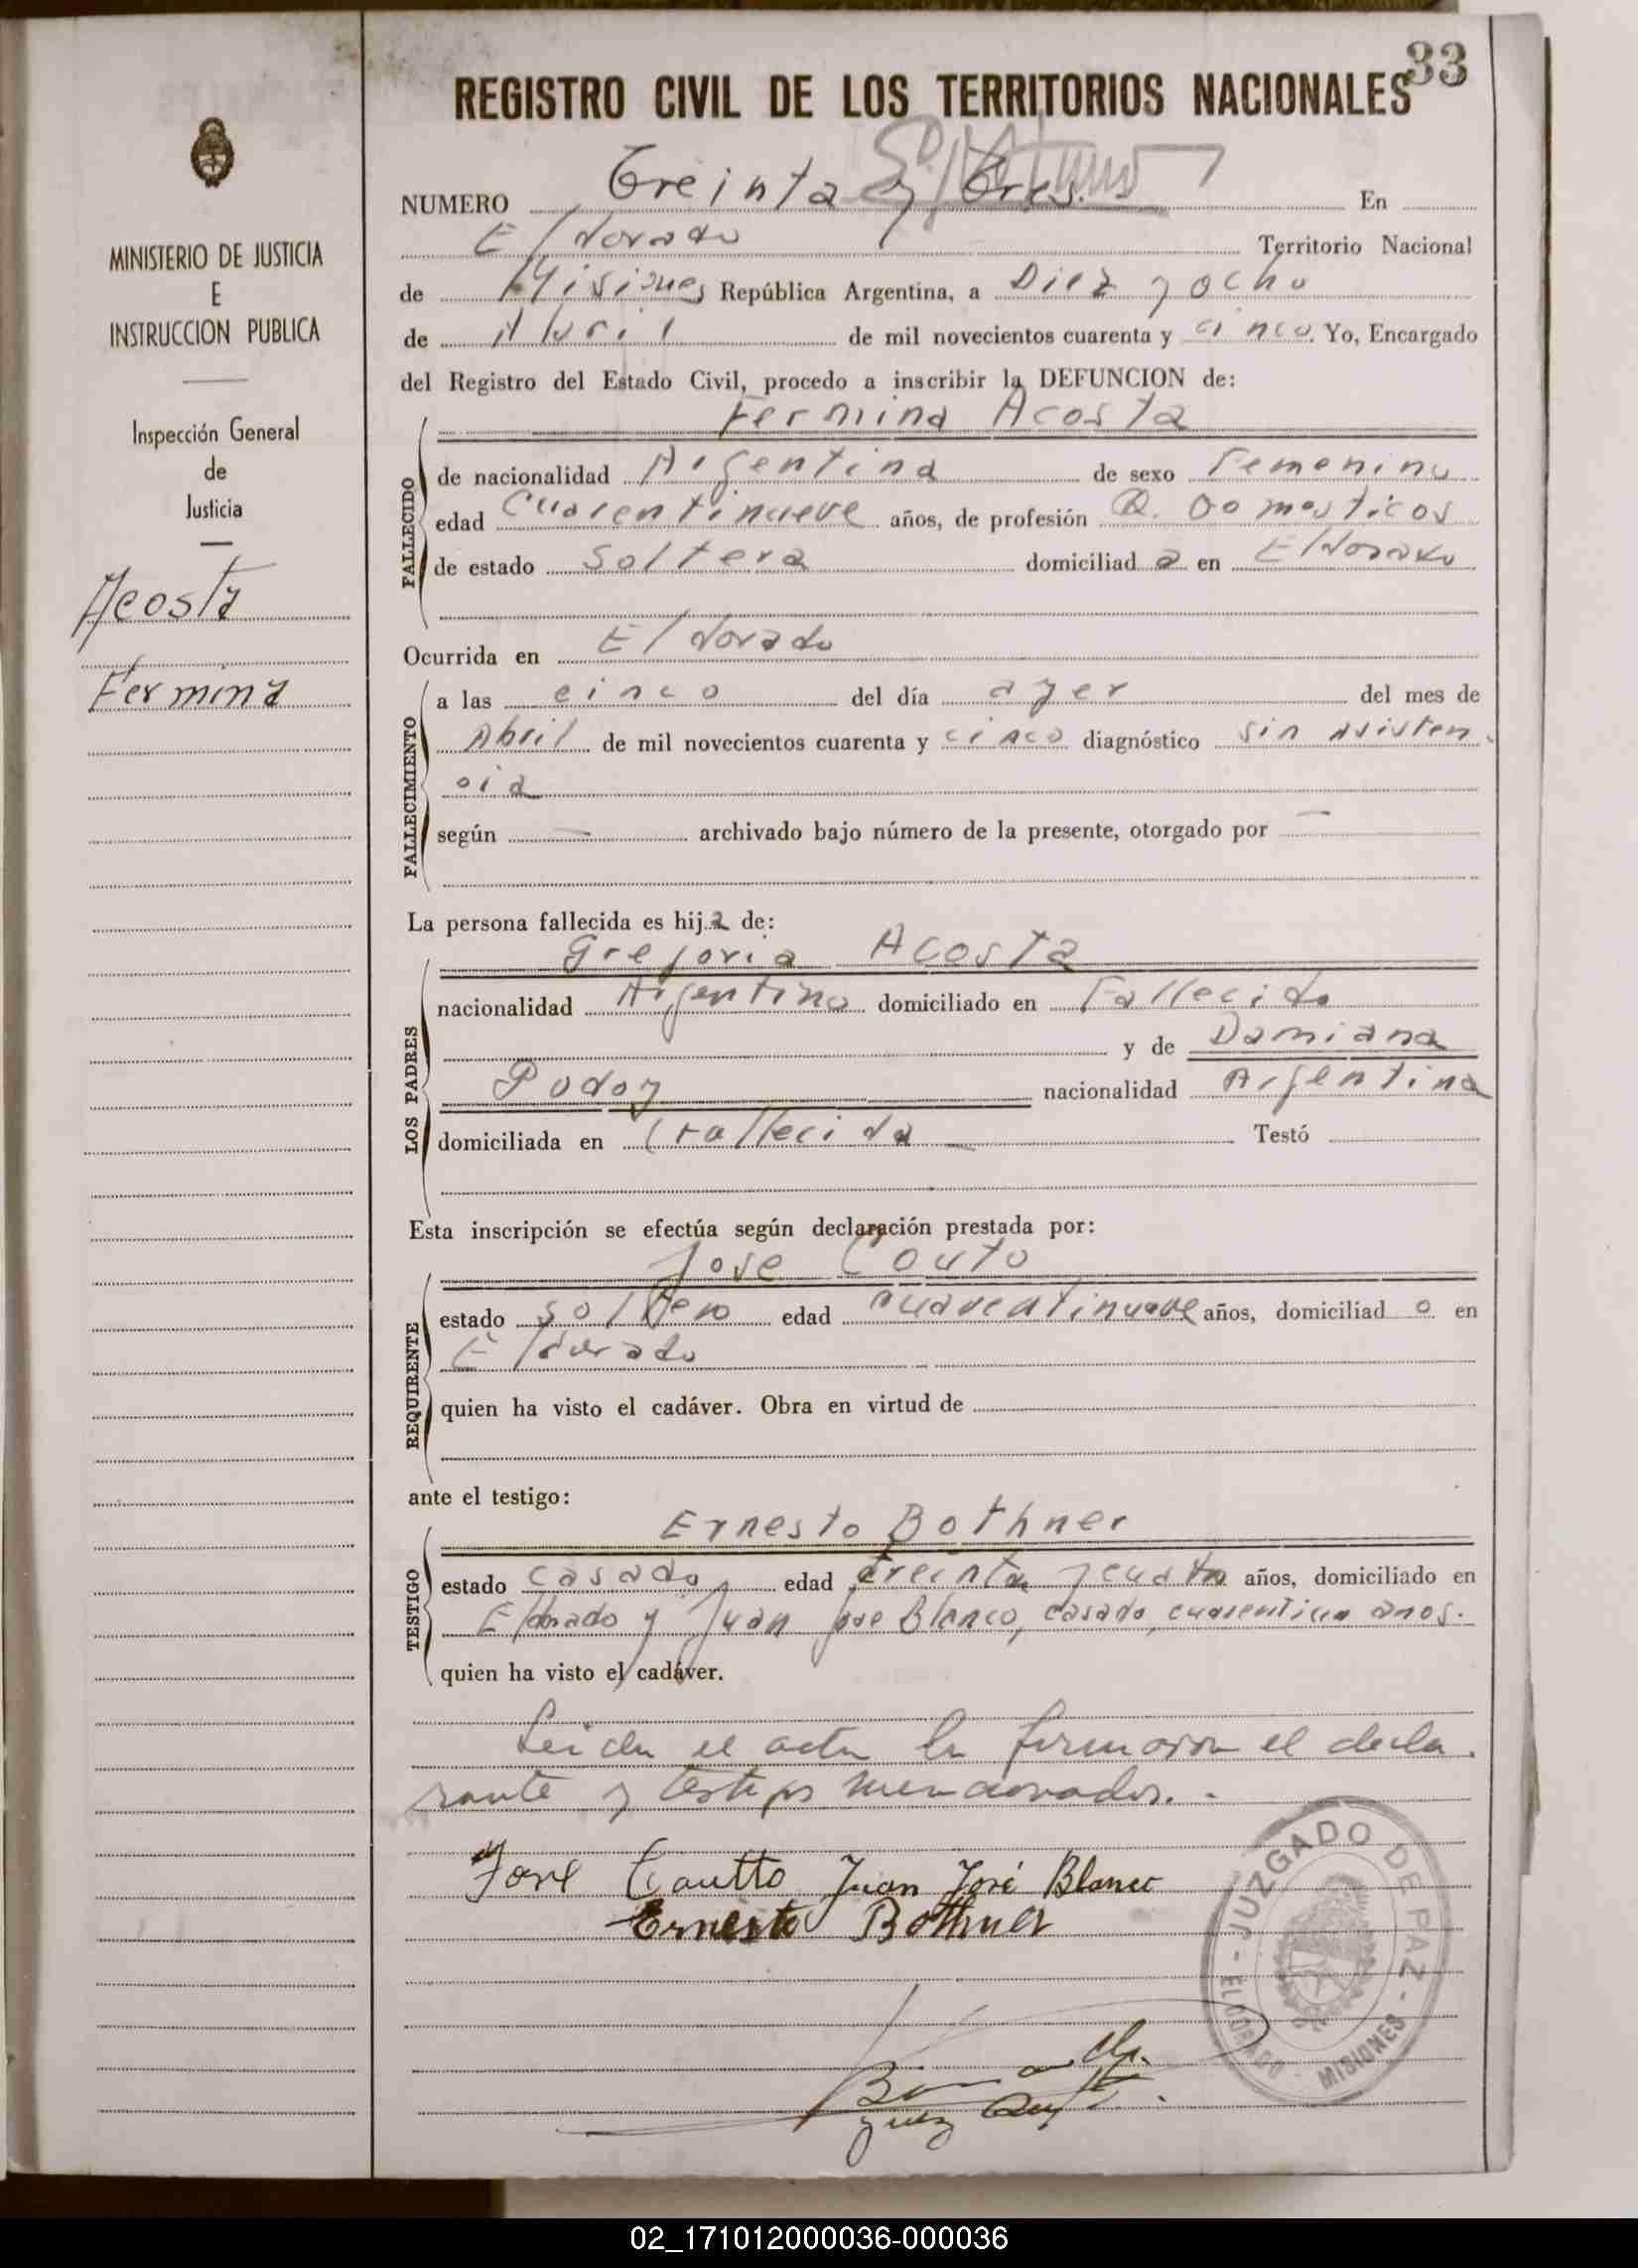 33
REGISTRO CIVIL DE LOS TERRITORIOS NACIONALES
MINISTERIO DE JUSTICIA
E
INSTRUCCION PUBLICA
Inspección General
de
Justicia
Acosta
Fermina
NUMERO Treinta y tres. En
Eldorado Territorio Nacional
de Misiones República Argentina, a Diez y ocho
de Abril de mil novecientos cuarenta y cinco. Yo, Encargado
del Registro del Estado Civil, procedo a inscribir la DEFUNCION de:
Fermina Acosta
FALLECIDO
de nacionalidad Argentina de sexo Femenino
edad Cuarentinueve años, de profesión Q. Domesticos
de estado Soltera domiciliad a en Eldorado
Ocurrida en Eldorado
FALLECIMIENTO
a las cinco del día ayer del mes de
Abril de mil novecientos cuarenta y cinco diagnóstico Sin Asisten
cia
según — archivado bajo número de la presente, otorgado por —
La persona fallecida es hija de:
Gregorio Acosta
LOS PADRES
nacionalidad Argentino domiciliado en Fallecido
y de Damiana
Godoy nacionalidad Argentina
domiciliada en (Fallecida — Testó
Esta inscripción se efectúa según declaración prestada por:
Jose Couto
REQUIRENTE
estado soltero edad cuarentinueve años, domiciliad o en
Eldorado
quien ha visto el cadáver. Obra en virtud de
ante el testigo:
Ernesto Bothner
TESTIGO
estado casado edad treinta y cuatro años, domiciliado en
Eldorado y Juan Jose Blanco, casado, cuarentiun anos.
quien ha visto el cadáver.
Leida el acta la firmaron el decla
rante y testigos mencionados. -
José Coutto Juan José Blanco
Ernesto Bothner
JUZGADO DE PAZ
ELDORADO - MISIONES
02_171012000036-000036